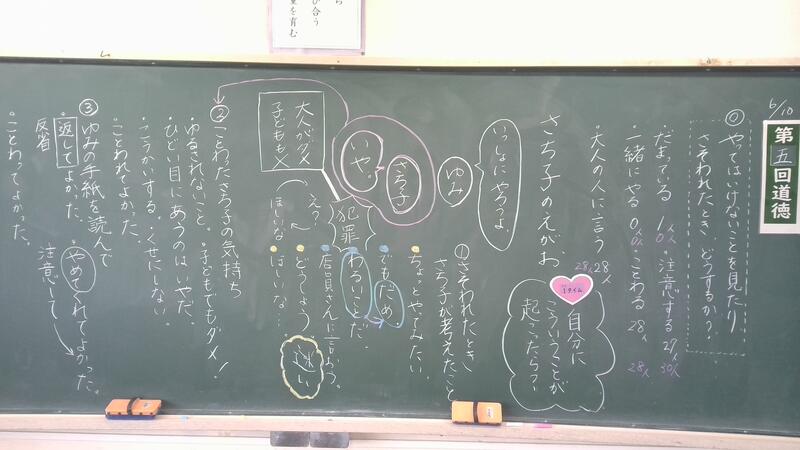 6/10
第五回道徳
◎やってはいけないことを見たり
さそわれたとき、どうするか?
・だまっている 1人 0人 ・注意する 27人 30人
・一緒にやる 0人 0人 ・ことわる 28人 28人
・大人の人に言う 28人 28人
さち子のえがお
自分に
こういうことが
起こったら?
いっしょにやろうよ。
ゆみ
さち子
いや。
①さそわれたとき
さち子が考えたこと
ちょっとやってみたい。
でもだめ
わるいことだ。
店員さんに言おう。
どうしよう
ほしいな…
迷い
犯罪
え?
ほしいな
大人がダメ
子どももダメ
②ことわったさち子の気持ち
・ゆるされないこと。・子どもでもダメ!
・ひどい目にあうのはいやだ。
・こうかいする。・くせにしない。
・ことわれてよかった。
③ゆみの手紙を読んで
・返してよかった。
反省
・やめてくれてよかった。
注意して
・ことわってよかった。